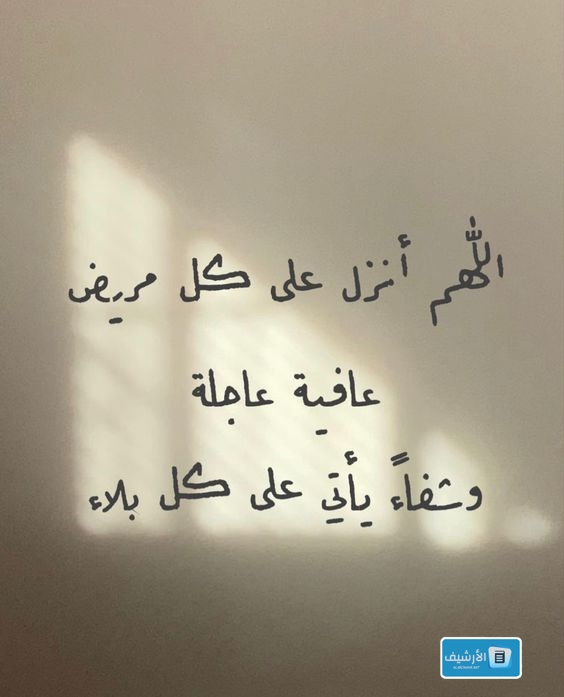 اللهم أنزل على كل مريض
عافية عاجلة
وشفاءً يأتي على كل بلاء
الأرشيف